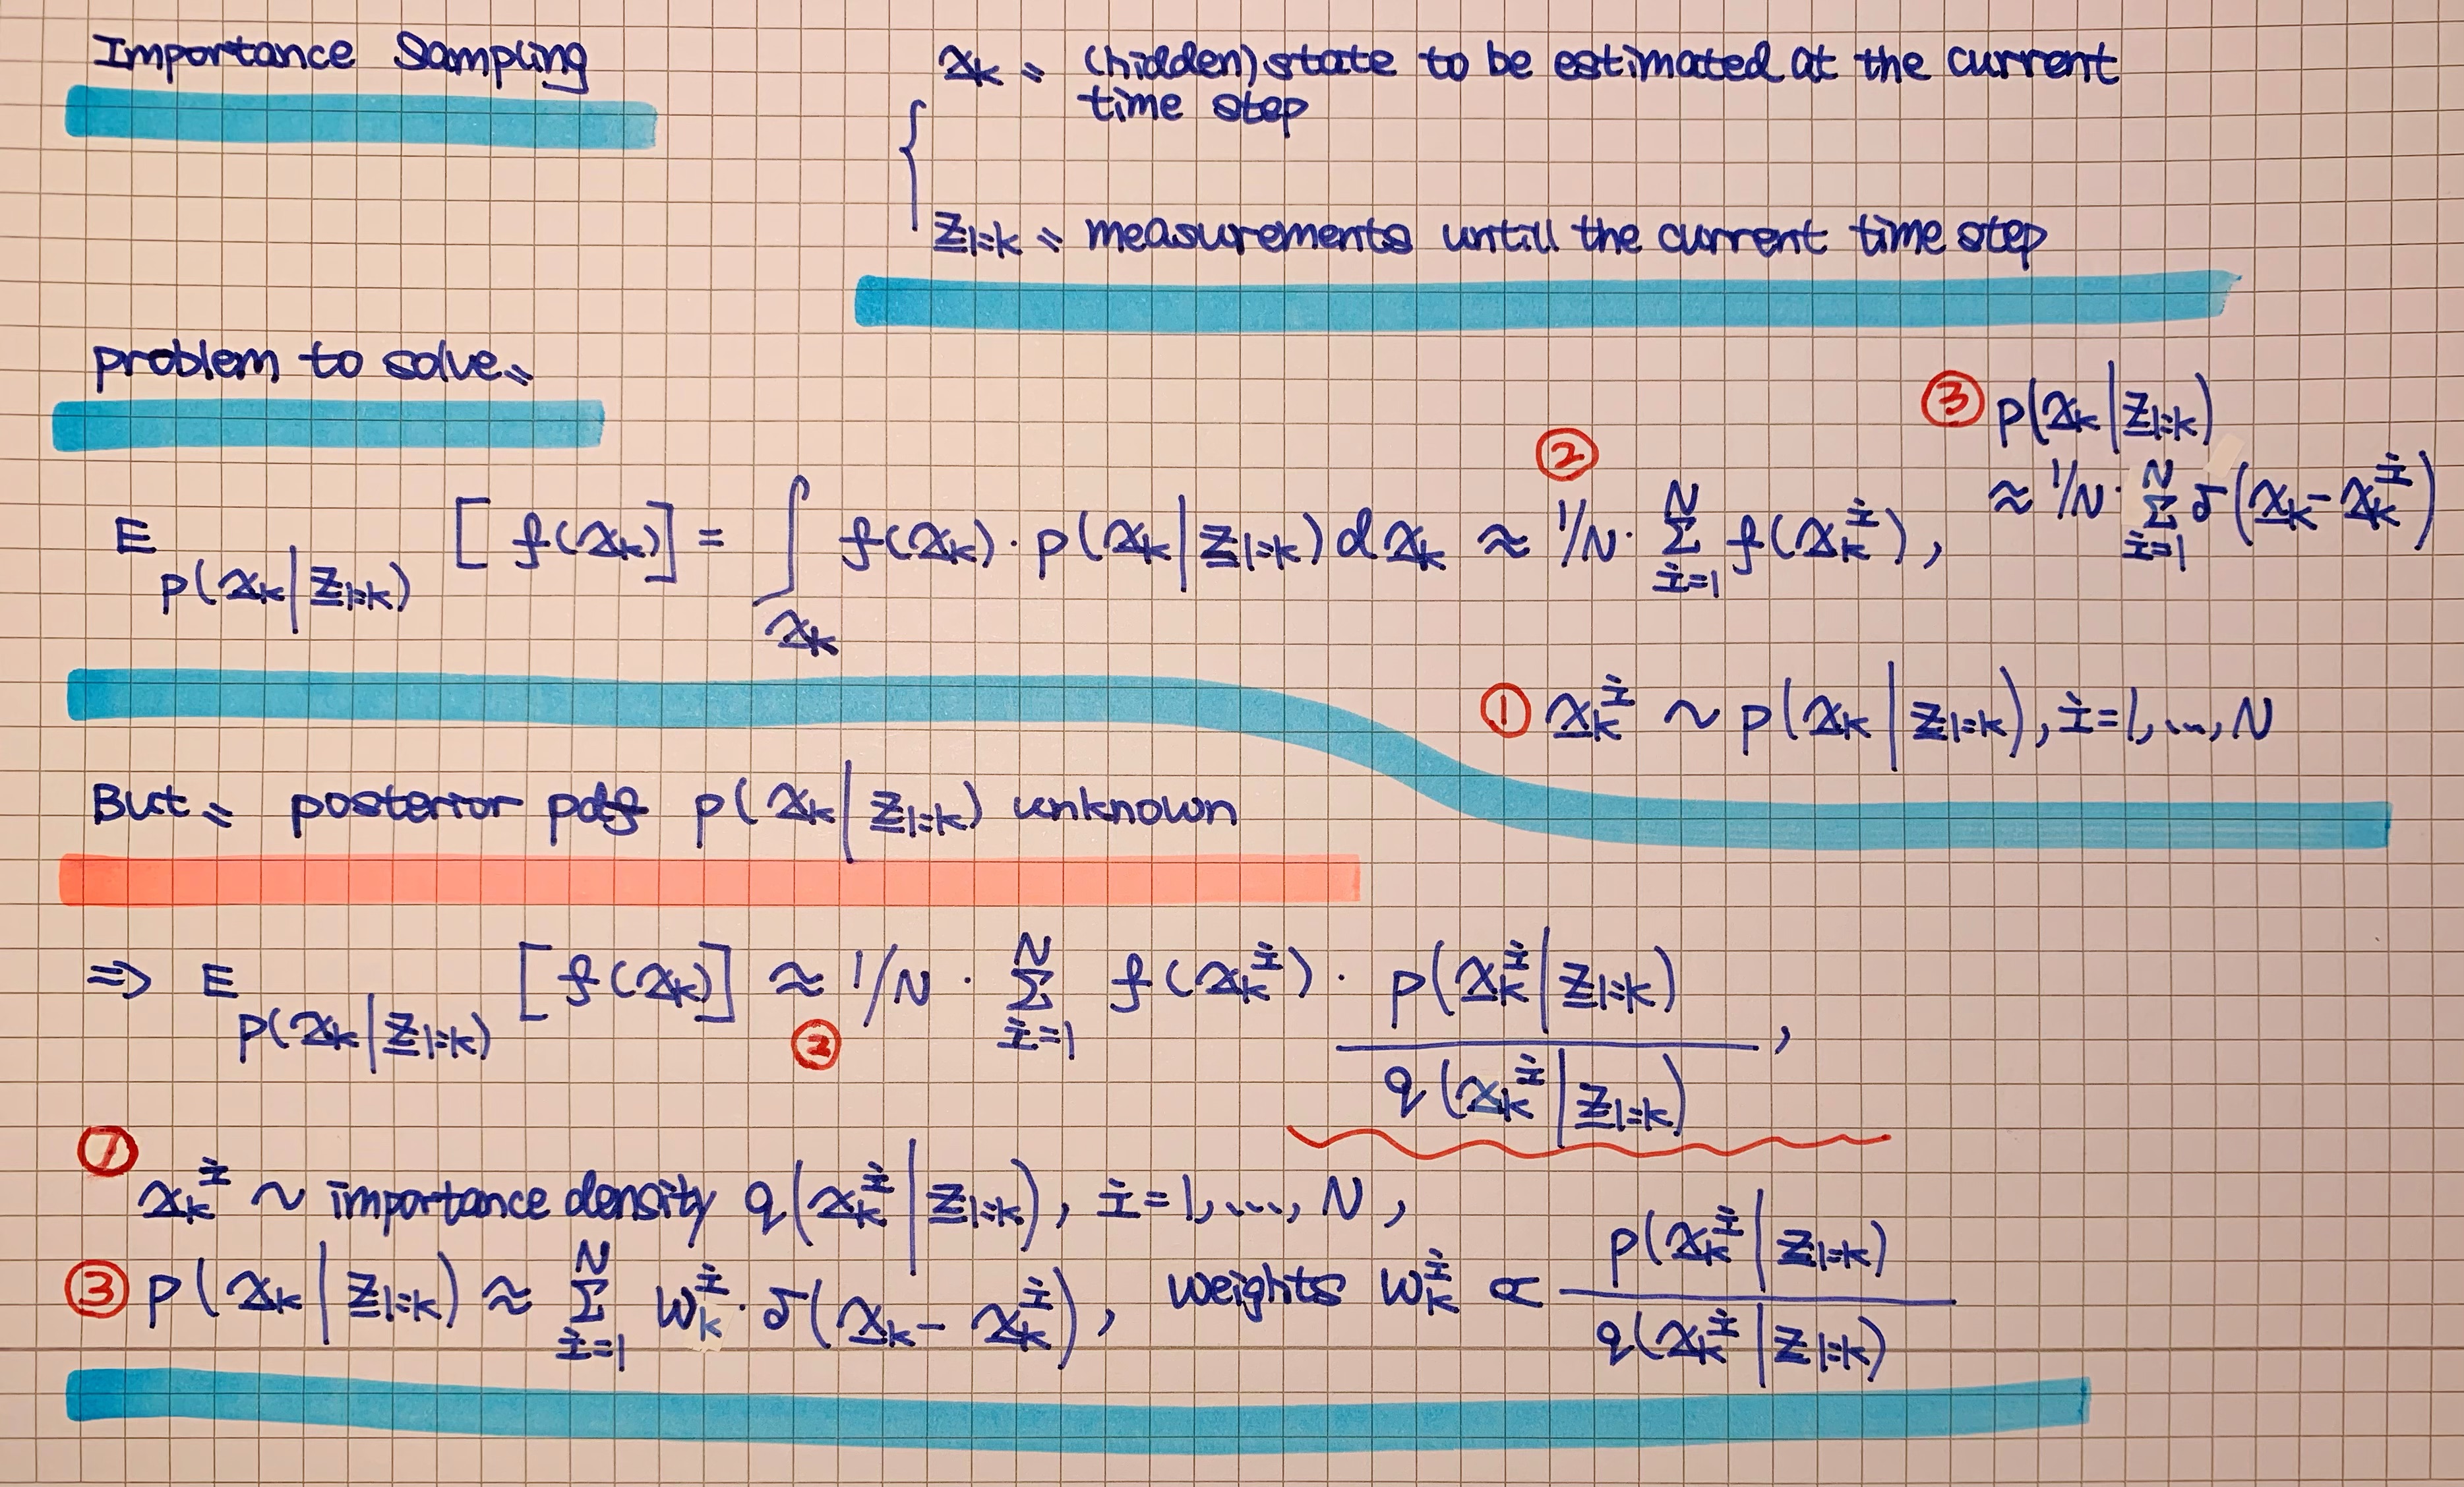 Importance Sampling
x̲k : (hidden) state to be estimated at the current
time step
z̲1:k : measurements untill the current time step
problem to solve:
E p(x̲k | z̲1:k) [ f(x̲k) ] = ∫ x̲k f(x̲k) · p(x̲k | z̲1:k) d x̲k ≈ ② 1/N · Σ i=1 N f(x̲k^i),
③ p(x̲k | z̲1:k)
≈ 1/N · Σ i=1 N δ(x̲k - x̲k^i)
① x̲k^i ~ p(x̲k | z̲1:k), i=1, ..., N
But: posterior pdf p(x̲k | z̲1:k) unknown
=> E p(x̲k | z̲1:k) [ f(x̲k) ] ≈ ② 1/N · Σ i=1 N f(x̲k^i) · p(x̲k^i | z̲1:k) / q(x̲k^i | z̲1:k),
① x̲k^i ~ importance density q(x̲k^i | z̲1:k), i=1, ..., N,
③ p(x̲k | z̲1:k) ≈ Σ i=1 N wk^i · δ(x̲k - x̲k^i), weights wk^i ∝ p(x̲k^i | z̲1:k) / q(x̲k^i | z̲1:k)